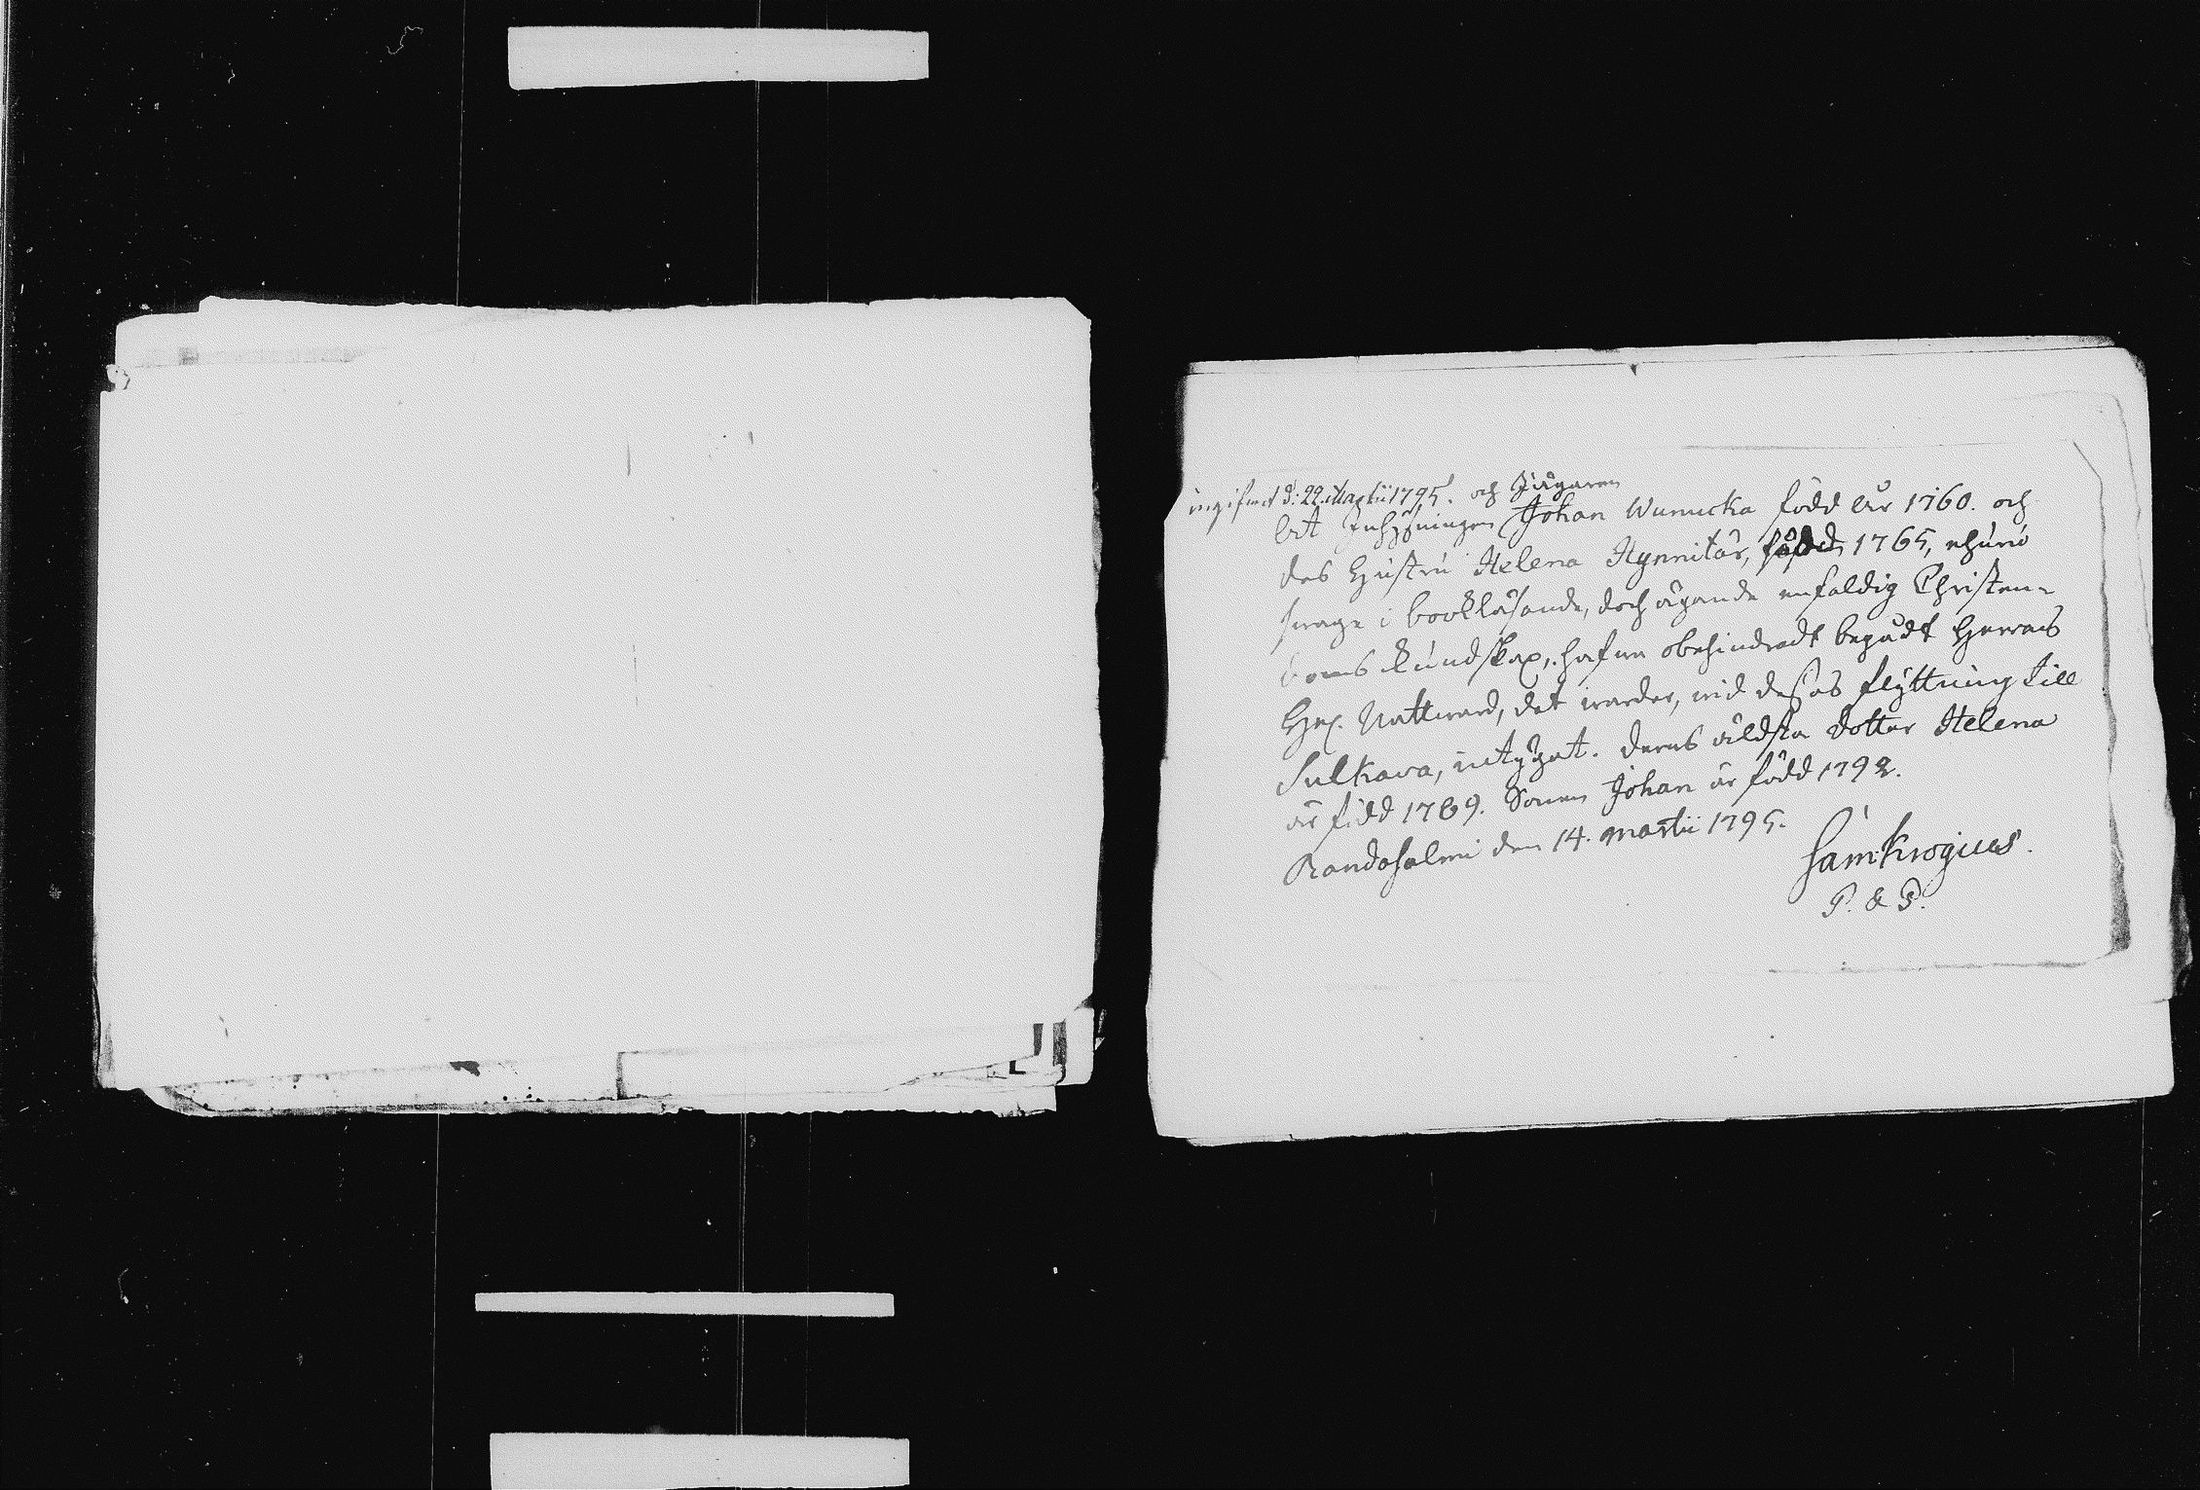 ingifwet d: 22 Martii 1795. och Jägaren
Att Inhysningen Johan Wunucka född år 1760. och
des Hustru Helena Hynnitär, född 1765, ehuru
swage i bokläsande, doch ägande enfaldig Christen-
doms kundskap, hafwa obehindradt begådt Herrans
Hel. Nattward, det warder, wid dessas flyttning till
Sulkava, intygat. Deras äldsta dotter Helena
är född 1789. Sonen Johan är född 1792.
Randasalmi den 14. Martii 1795.
Sam: Krogius.
P. & P.